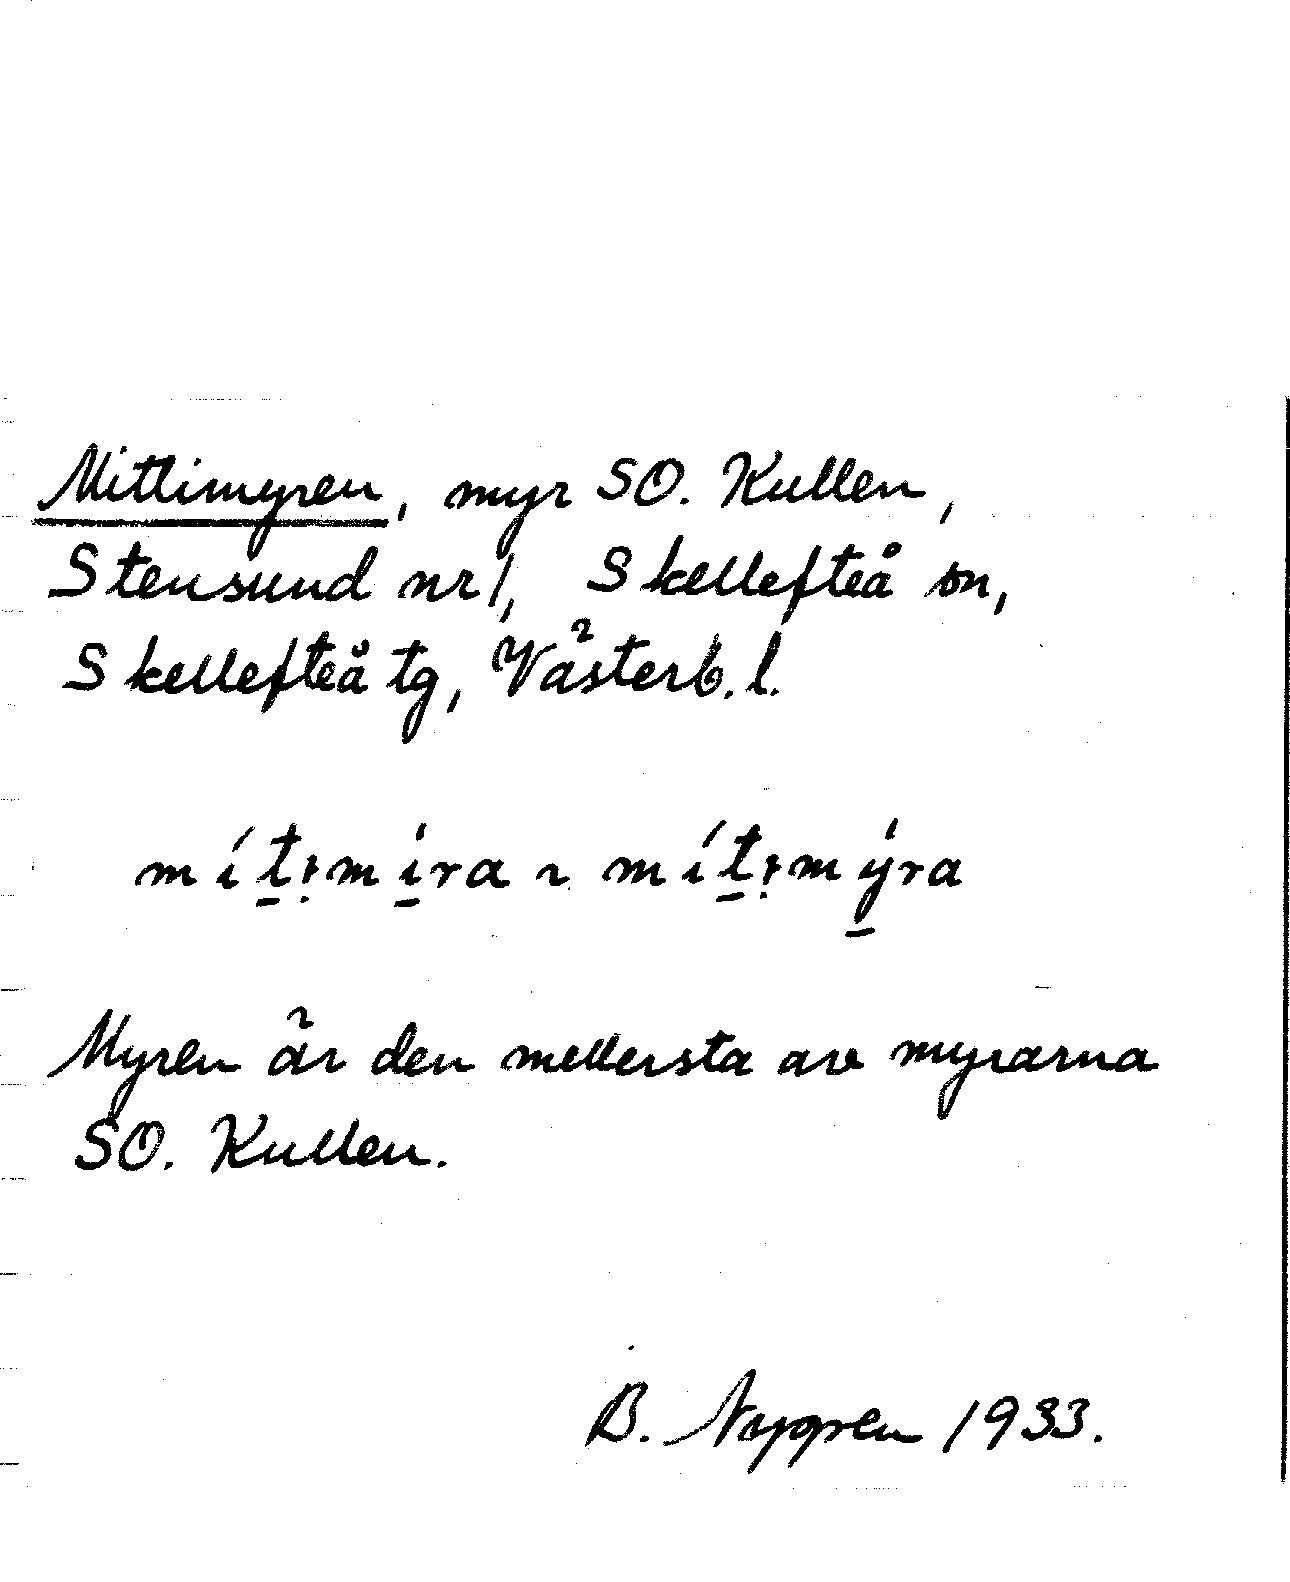 Mittimyren, myr SO. Kullen,
Stensund nr 1, Skellefteå sn,
Skellefteå tg, Västerb. l.
mí̱t̠ı̣mi̱ra ~ mít̠ı̣mý̱ra
Myren är den mellersta av myrarna
SO. Kullen.
B. Nygren 1933.